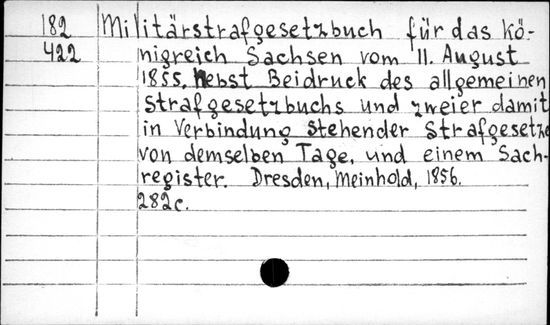 182 Militärstrafgesetzbuch für das Kö-
422 nigreich Sachsen vom 11. August
1855. Nebst Beidruck des allgemeinen
Strafgesetzbuchs und zweier damit
in Verbindung stehender Strafgesetze
von demselben Tage, und einem Sach-
register. Dresden, Meinhold, 1856.
282c.